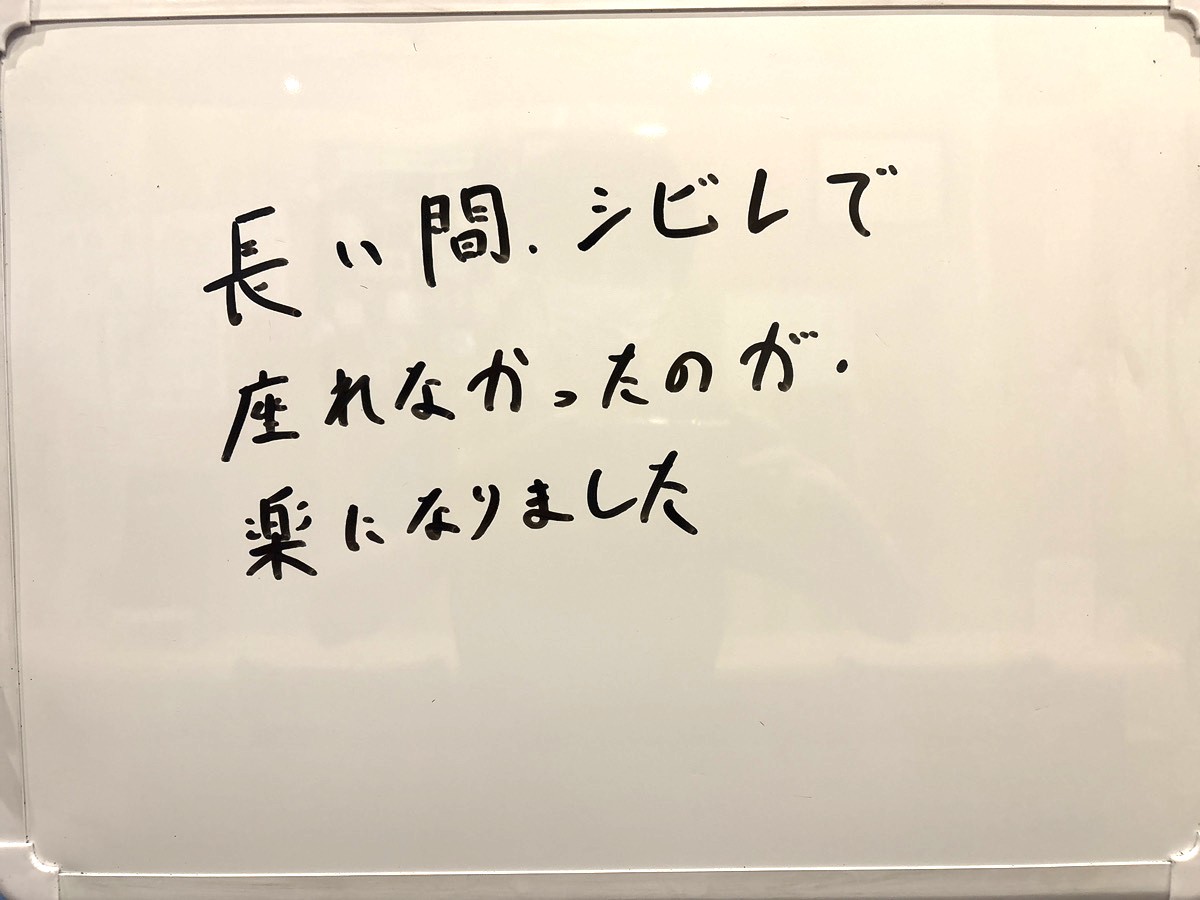 長い間、シビレで
座れなかったのが、
楽になりました